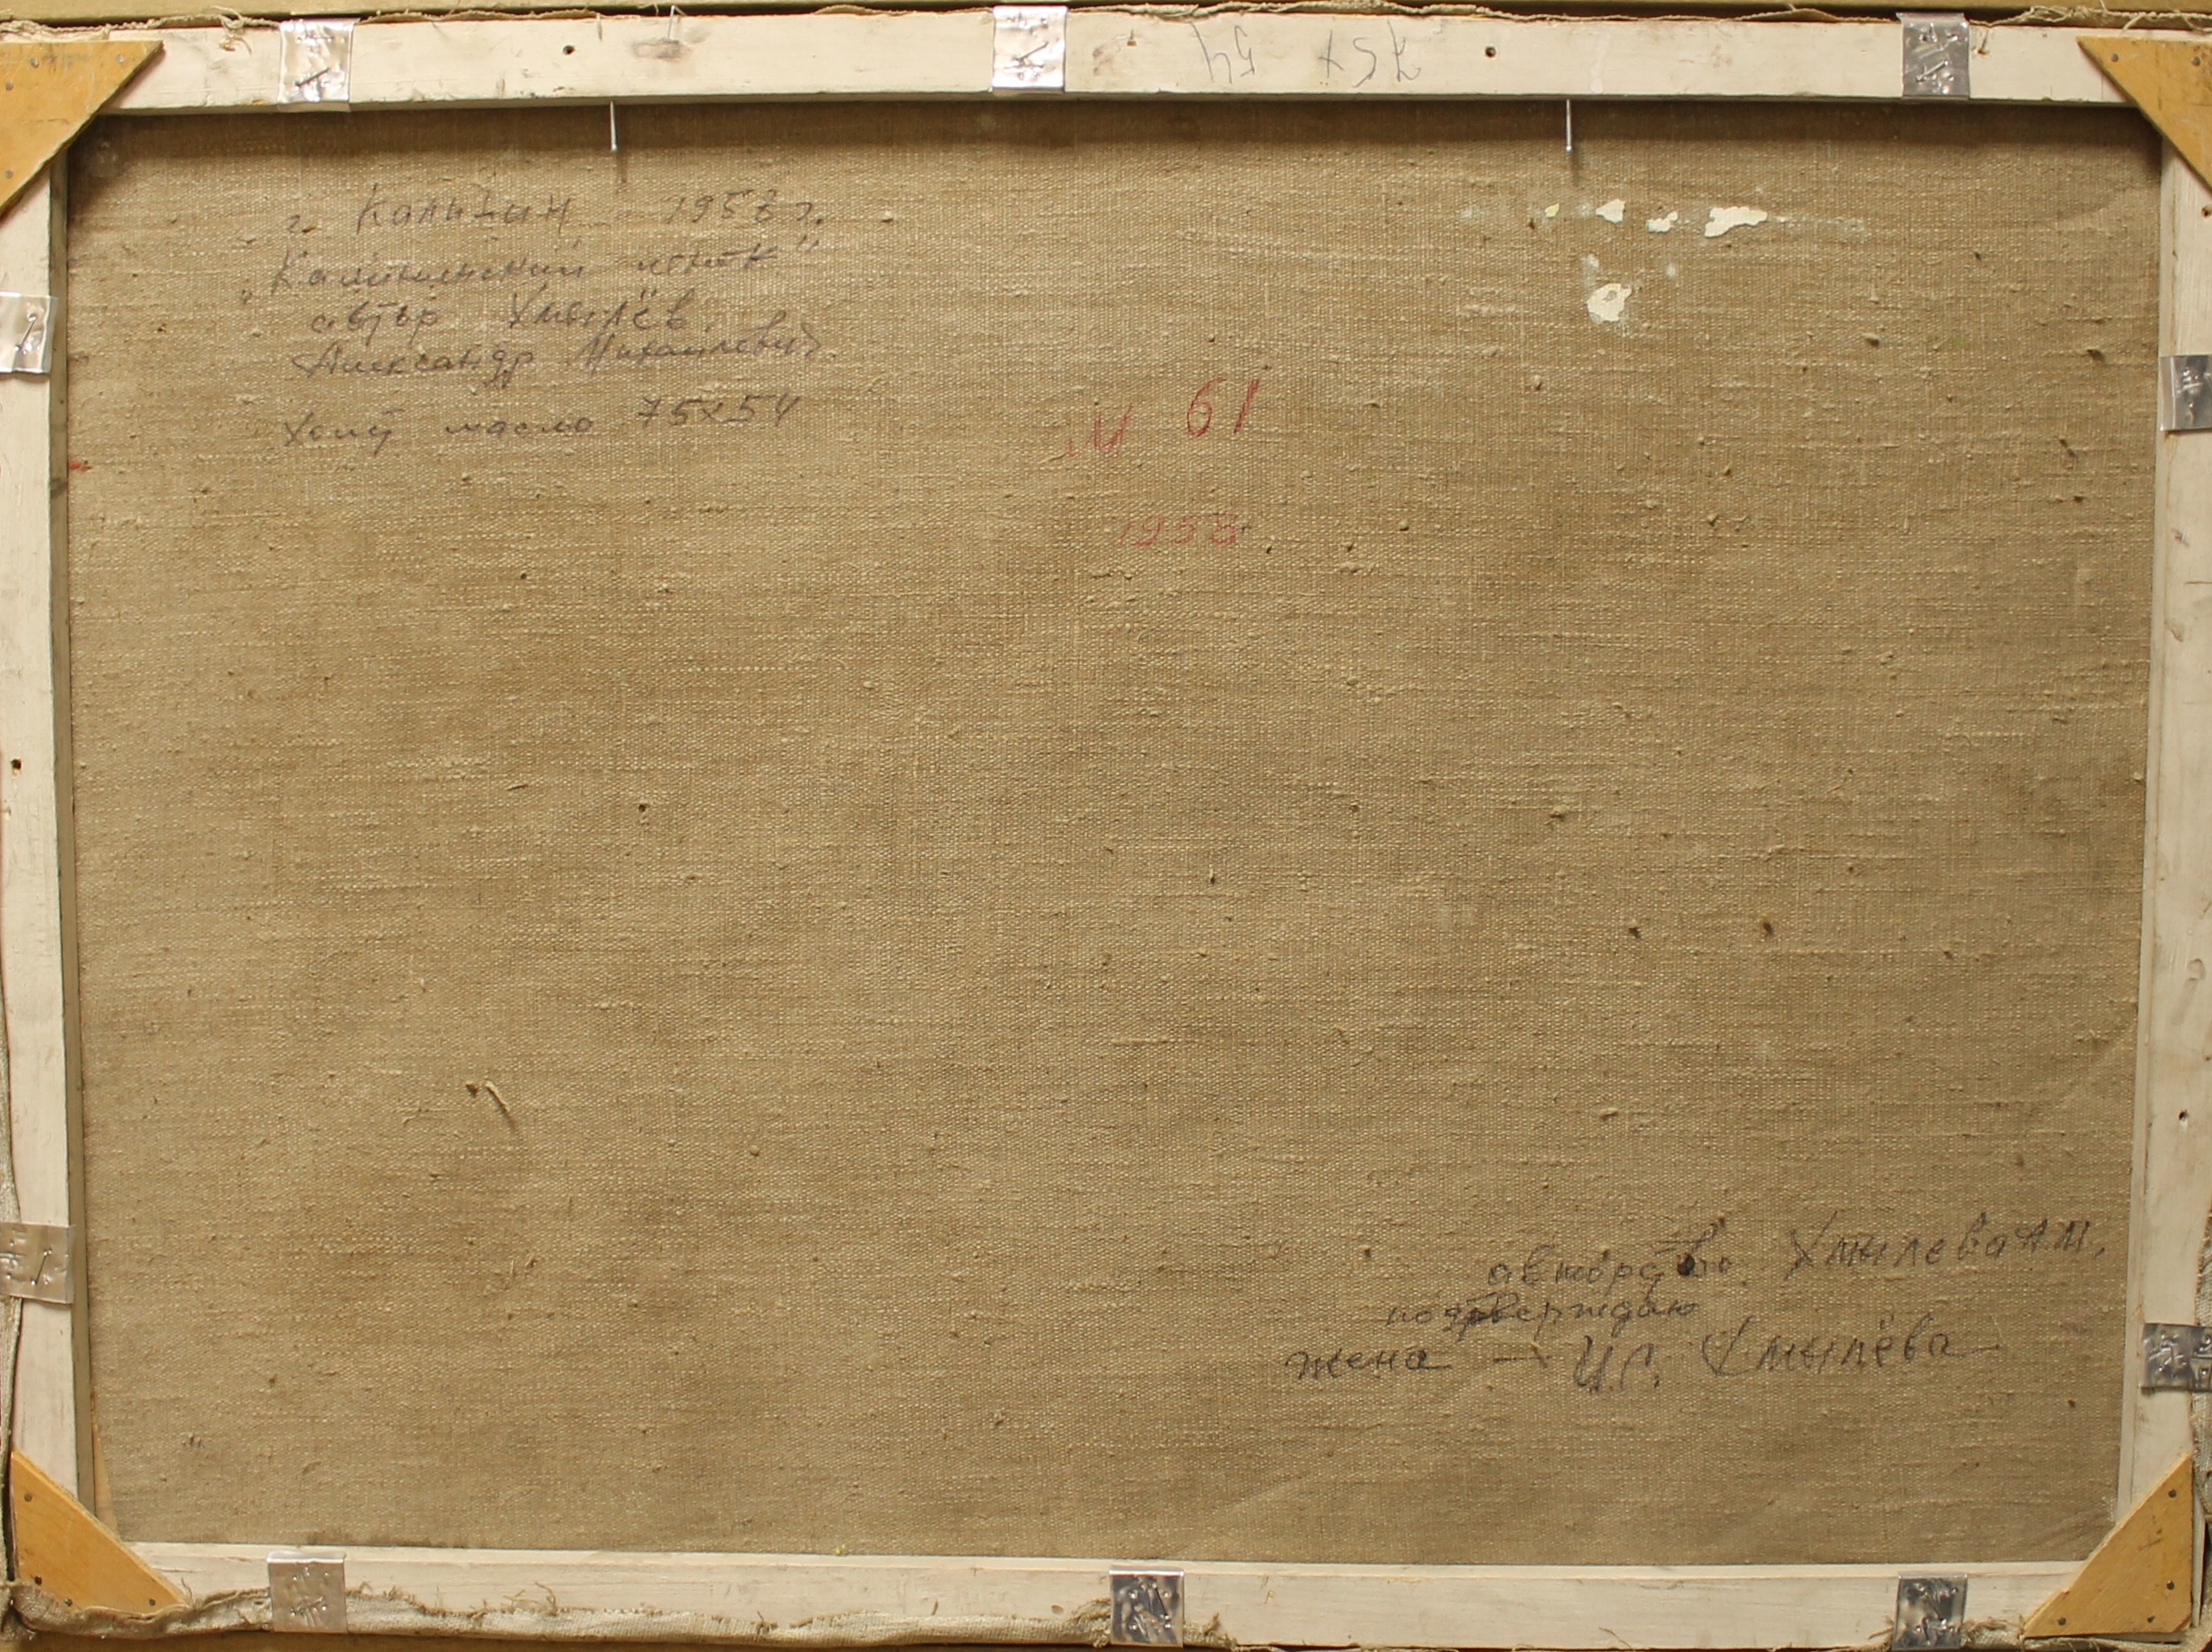 75 х 54
г. Калинин 1958 г.
„Калининский
автор Хмылёв.
Александр Михайлович.
Холст масло 75х54
N 61
1958.
авторство Хмылева А.М.
подтверждаю
жена — И.С. Хмылёва